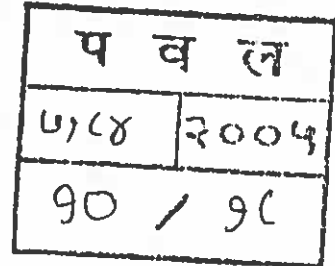 प व ल
७,८४ २००५
१० / १८